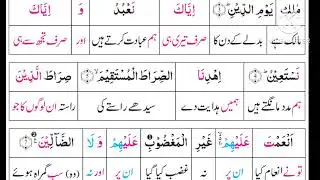 مٰلِكِ یَوْمِ الدِّیْنِ ۝ اِیَّاكَ نَعْبُدُ وَ اِیَّاكَ
مالک ہے بدلے کے دن کا صرف تیری ہی ہم عبادت کرتے ہیں اور صرف تجھ سے ہی
نَسْتَعِیْنُ ۝ اِهْدِنَا الصِّرَاطَ الْمُسْتَقِیْمَ ۝ صِرَاطَ الَّذِیْنَ
ہم مدد مانگتے ہیں ہمیں ہدایت دے سیدھے راستے کی راستہ ان لوگوں کا جو
اَنْعَمْتَ عَلَیْهِمْ ۝ غَیْرِ الْمَغْضُوْبِ عَلَیْهِمْ وَ لَا الضَّآلِّیْنَ ۝
تو نے انعام کیا ان پر نہ غضب کیا گیا ان پر اور نہ (وہ) سب گمراہ ہوئے